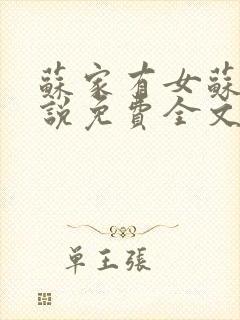 蘇家有女蘇
說免費全文
单王張